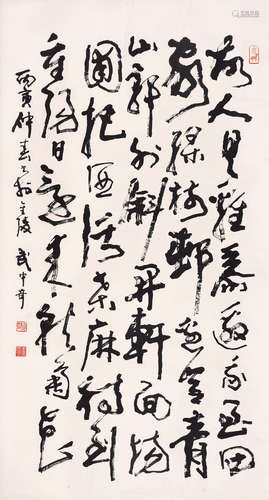 故人具雞黍邀我至田
家綠樹邨邊合青
山郭外斜開軒面場
圃把酒話桑麻待到
重陽日還來就菊花
丙寅仲春書於金陵武中奇